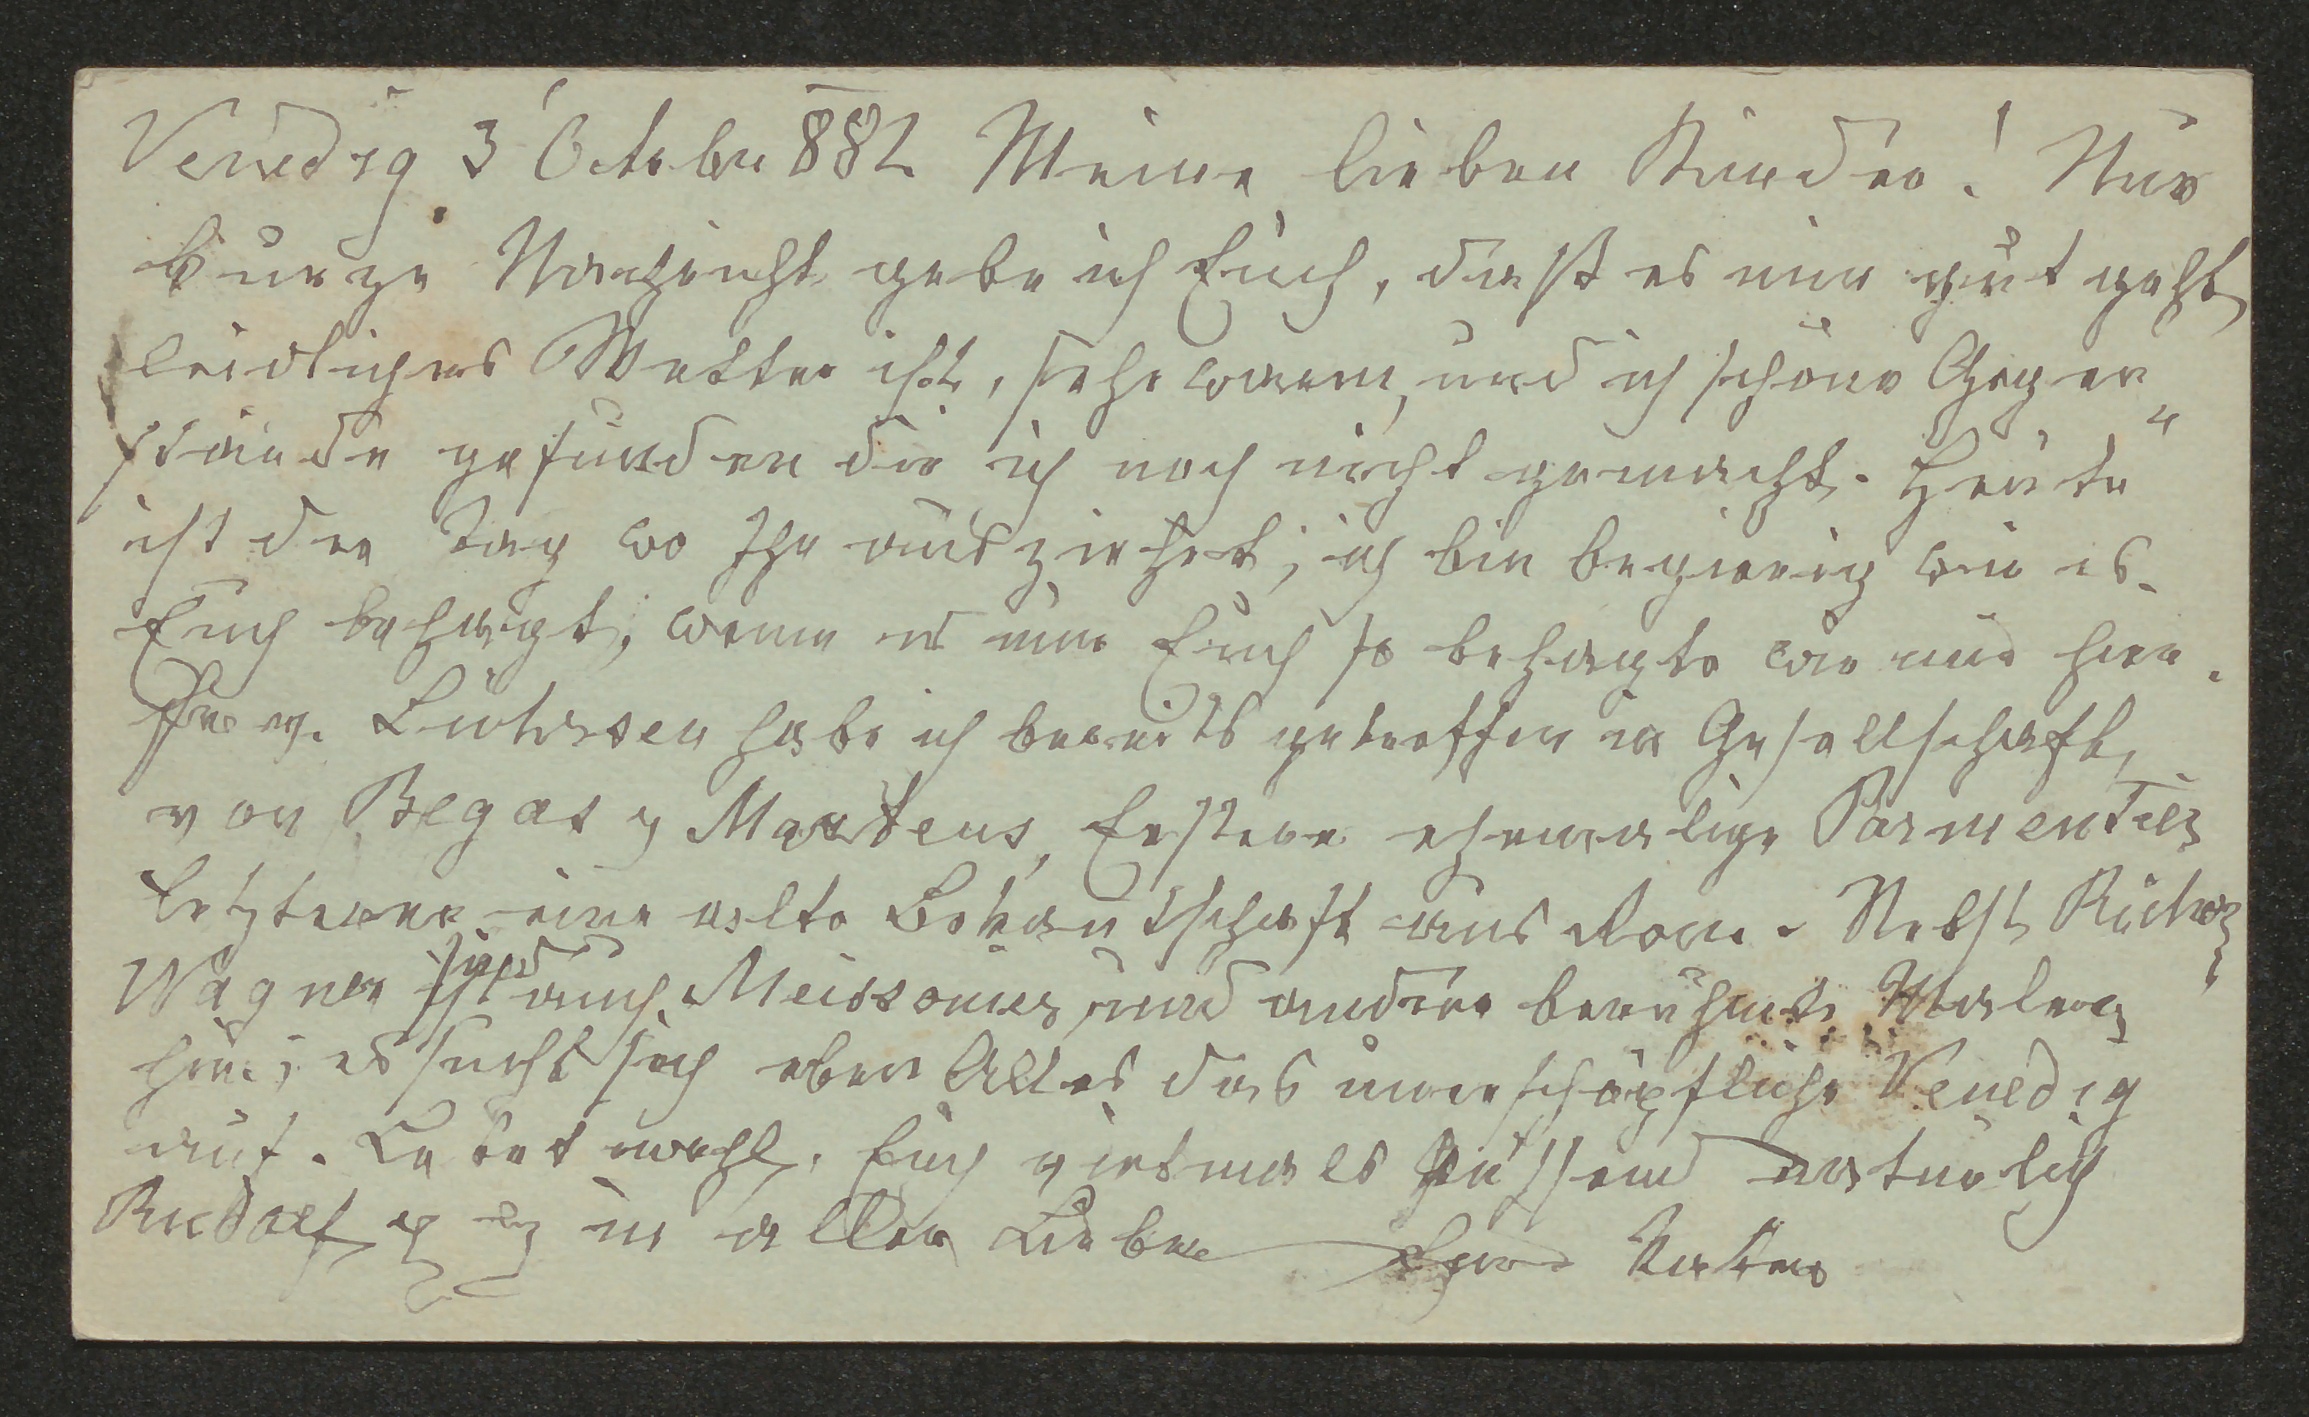 Venedig 3 October 882 Meine lieben Kinder! Nur
kurze Nachricht gebe ich Euch, daß es mir gut geht
leidliches Wetter ist, sehr warm, und ich schöne Gegen„
stände gefunden die ich noch nicht gemacht. Heute
ist der Tag wo Ihr ausziehet; ich bin begierig wie es
Euch behagt, wenn es nur Euch so behagte wie mir hier.
Fr v. habe ich bereits getroffen in Gesellschaft,
von Begas u Martens, Erstere ehemalige Parmentier
letzterer eine alte Bekantschaft aus Rom. Nebst Richar
Wagner sind auch Meissonier und andere berühmte Maler
hier; es sucht sich eben Alles das unerschöpfliche Venedig
auf. Lebet wohl, Euch vielmals küssend natürlich
Rudolf in aller Liebe Euer Vater